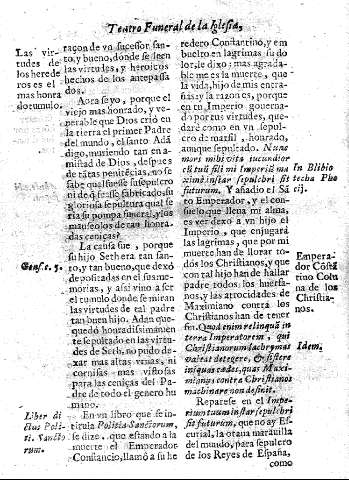 Teatro Funeral de la Iglesia,
Las virtudes
de los herederos
es el
mas honrado
tumulo.
raçon de vn sucessor santo,
y bueno, donde se lean
las virtudes, y heroicos
hechos de los antepassados.
Aora se yo, porque el
viejo mas honrado, y venerable
que Dios criò en
la tierra el primer Padre
del mundo, el santo Adá
digo, muriendo tan en a-
mistad de Dios, despues
de tātas penitēcias, no se
sabe qual fuesse su sepulcro
ni de q̃ fuesse fabricado, su
gloriosa sepultura qual seria
su pompa funeral, y los
mauseolos de tan honradas
ceniças?
Genes. c. 5.
La causa fue, porque
su hijo Seth era tan santo,
y tan bueno, que dexò
depositadas en el sus memorias,
y assi vino a ser
el tumulo donde se miran
las virtudes de tal padre
tan buen hijo. Adan quedò
honradissimamente
sepultado en las virtudes
de Seth, no pudo dexar
mas altas vrnas, ni
cornisas mas vistosas
para las ceniças del Padre
de todo el genero humano.
Liber dictus
Politi.
Sanctorum.
En vn libro que se intitula
Politia Sanctorum,
se dize, que estando a la
muerte el Emperador
Constancio, llamò a su heredero
Constantino, y embuelto
en lagrimas su dolor,
le dixo: mas agradable
me es la muerte, que
la vida, hijo de mis entrañas,
y la razon es, porque
en vn Imperio gouernado
por tus virtudes, quedarè
como en vn sepulcro
de marfil, honrado,
aunque sepultado. Nunc
mors mihi vita iucundior
est
In Biblio
techa Pho
cij.
futurum. Y añadio el Sāto
Emperador, y el consuelo
que llena mi alma,
es ver dexo a vn hijo el
Imperio, que enjugarà
las lagrimas, que por mi
muerte han de llorar todos
los Christianos, y que
con tal hijo han de hallar
padre todos los huerfanos,
y las atrocidades de
Maximiano contra los
Christianos han de tener
fin. Quod enim relinquã in
terra Imperatorem, qui
Christianorum lachrymas
valeat detegere, & sistere
iniquas cades, quas Maximianus
contra Christianos
machinare non desinit.
Emperador
Cõstãtino
Coluna
de los
Christianos.
Idem,
Reparese en el Imperium
tuum instar sepulchri
sit futurum, que no ay Escurial,
la otaua marauilla
del mundo, para sepulcro
de los Reyes de España,
como